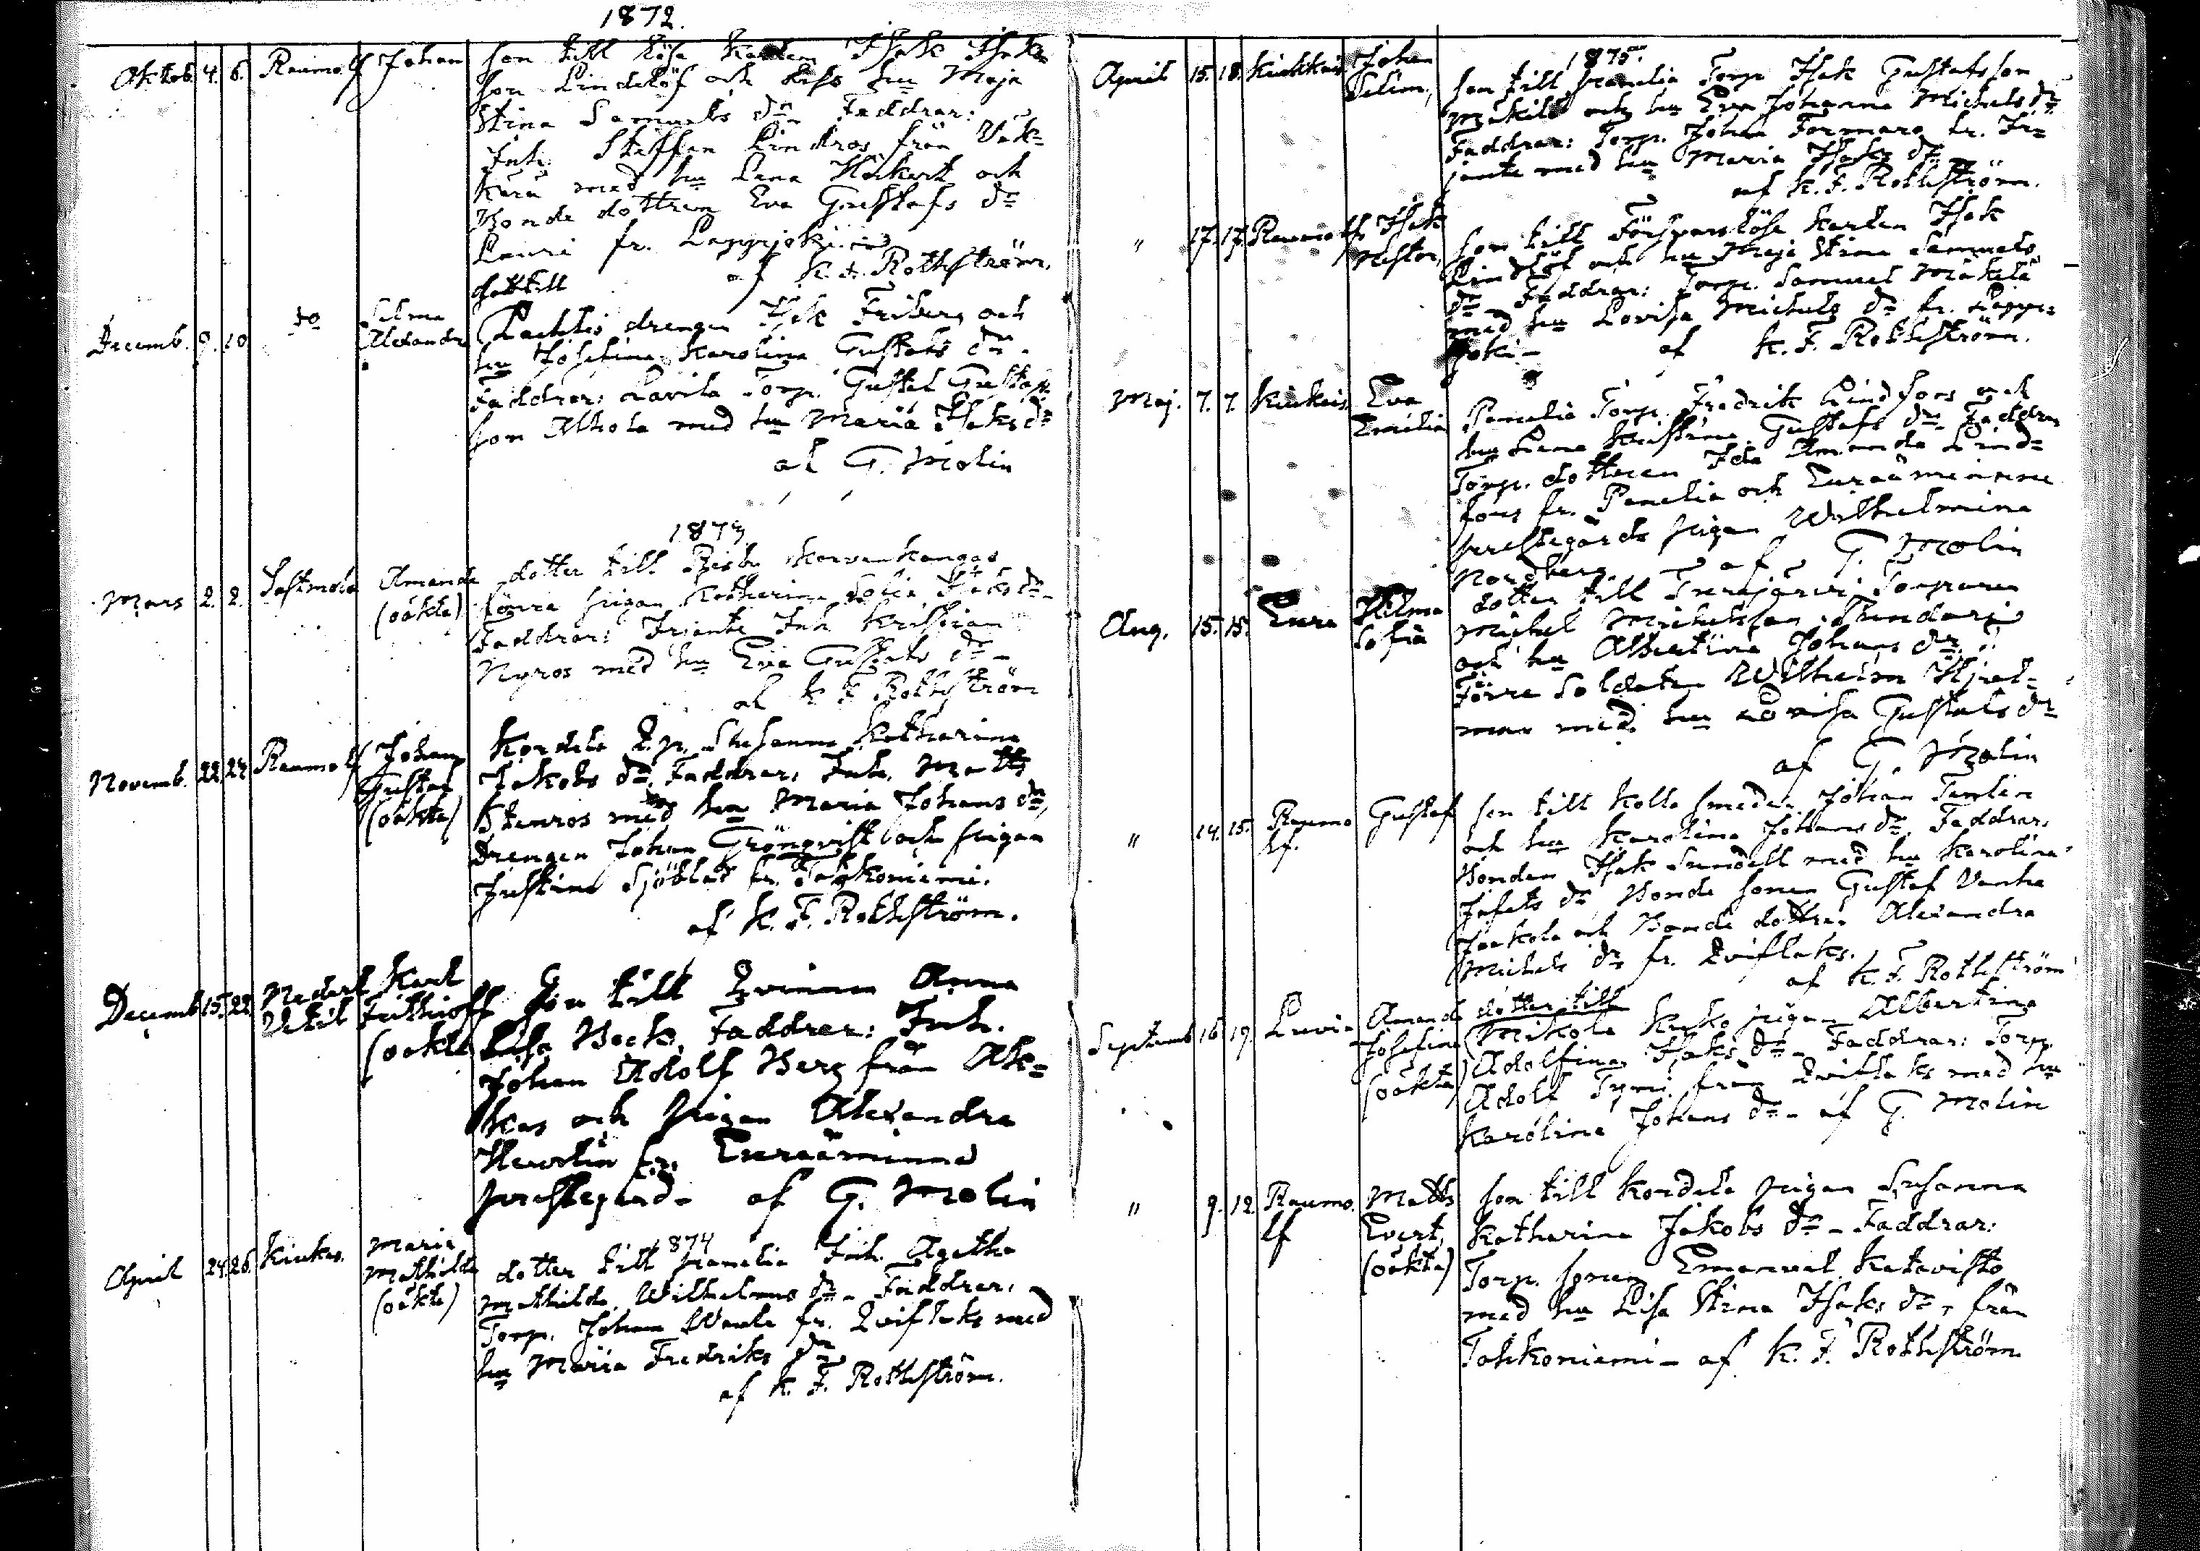 1872.
Oktob. 4. 6. Raumo lf Johan son till löse karlen Isak Isaks
son Lindelöf och hu Maja
Stina Samuels dr Faddrar:
Inh. Staffan Lindros från
med hu Lena Höckert och
Bonde dottren Eva Gustafs dr
Lauri fr. Lappijoki
af K. F. Rothström.
dotter till
Decemb. 9. 10 do Selma
Alexandra
drengen Isak Friberg och
hu Josefina Karolina Gustafs dr.
Faddrar: Lavila Torp. Gustaf Gustafs
son Alhola med hu Maria Isaks dr
af G. Molin
1873
Mars 2. 2. Sastmola Amanda
(oäkta)
dotter till
pigan Katharina Sofia Isaks dr.
Faddrar: Irjante Inh. Kristian
Nyros med hu Eva Gustafs dr
af K F Rothström
Novemb. 22 24 Raumo lf Johan
Gustaf
(oäkta)
Kordela Q.p. Susanna Katharina
Jakobs dr. Faddrar: Inh. Matts
Stenros med hu Maria Johans dr,
Drengen Johan Grönqvist och pigan
Justina Sjöblad fr. Tahkoniemi.
af K. F. Rothström.
Decemb 15. 22. Karl
Frithioff
(oäkta
son till Qvinnan Anna
Lisa Beck. Faddrar: Inh.
Johan Adolf Berg från Ak=
kas och pigan Alexandra
fr. Euraåminne
prestegård - af G. Molin
1874
April 24. 26. Kiukas. Maria
Mathilda
(oäkta)
dotter till Panelia Inh. Agatha
Mathilda Wilhelms dr - Faddrar:
Torp. Johan fr. Qviflaks med
hu Maria Fredriks dr
af K. F. Rothström.
1875.
April 15. 18. Kiukais Johan
Selim,
son till Panelia Torp Isak Gustafsson
Mäkilä och hu Eva Johanna Michels dr
Faddrar: Torp. Johan Formars fr. Ir=
jante med hu Maria Isaks dr
af K. F. Rothström.
" 17. 17. Raumo lf. Isak
Nestor,
son till Försvarslöse karlen Isak
Lindelöf och hu Maja Stina Samuels
dr - Faddrar: Torp. Samuel Mäkilä
med hu Lovisa Michels dr fr. Lappi=
joki - af K. F. Rothström.
Maj. 7. 7. Kiukais Eva
Emilia
Panelia Torp. Fredrik Lindfors och
hu Lena Kristina Gustafs dr. Faddrar
Torp. dottren Ida Amanda Lind=
fors fr. Panelia och Euraåminne
prestegårds pigan Wilhelmina
Nordberg. - af G. Molin
Aug. 15. 15. Eura Hilma
Sofia
dotter till Turajärvi Torparen
Michel Michelsson
och hu Albertina Johans dr.
Förre Soldaten Wilhelm Hjel=
man med hu Lovisa Gustafs dr
af G. Molin
" 14. 15. Raumo
lf.
Gustaf son till Kolla smeden Johan Tamlin
och hu Karolina Johans dr. Faddrar:
Bonden Isak Sundell med hu Karolina
Josefs dr Bonde sonen Gustaf Vanha
Jaakola och Bonde dottren Alexandra
Michels dr fr. Qviflaks.
af K. F. Rothström
Septemb 16. 19. Luvia Amanda
Josefina
(oäkta)
dotter till
Mikola pigan Albertina
Adolfina Isaks dr - Faddrar: Torp.
Adolf från Qviflaks med hu
Karolina Johans dr - af G. Molin
" 9. 12 Raumo.
lf
Matts
Evert,
(oäkta)
son till Kordela pigan Susanna
Katharina Jakobs dr - Faddrar:
Torp. sonen Emanuel Katavisto
med hu Lisa Stina Isaks dr, från
Tahkoniemi - af K. F. Rothström